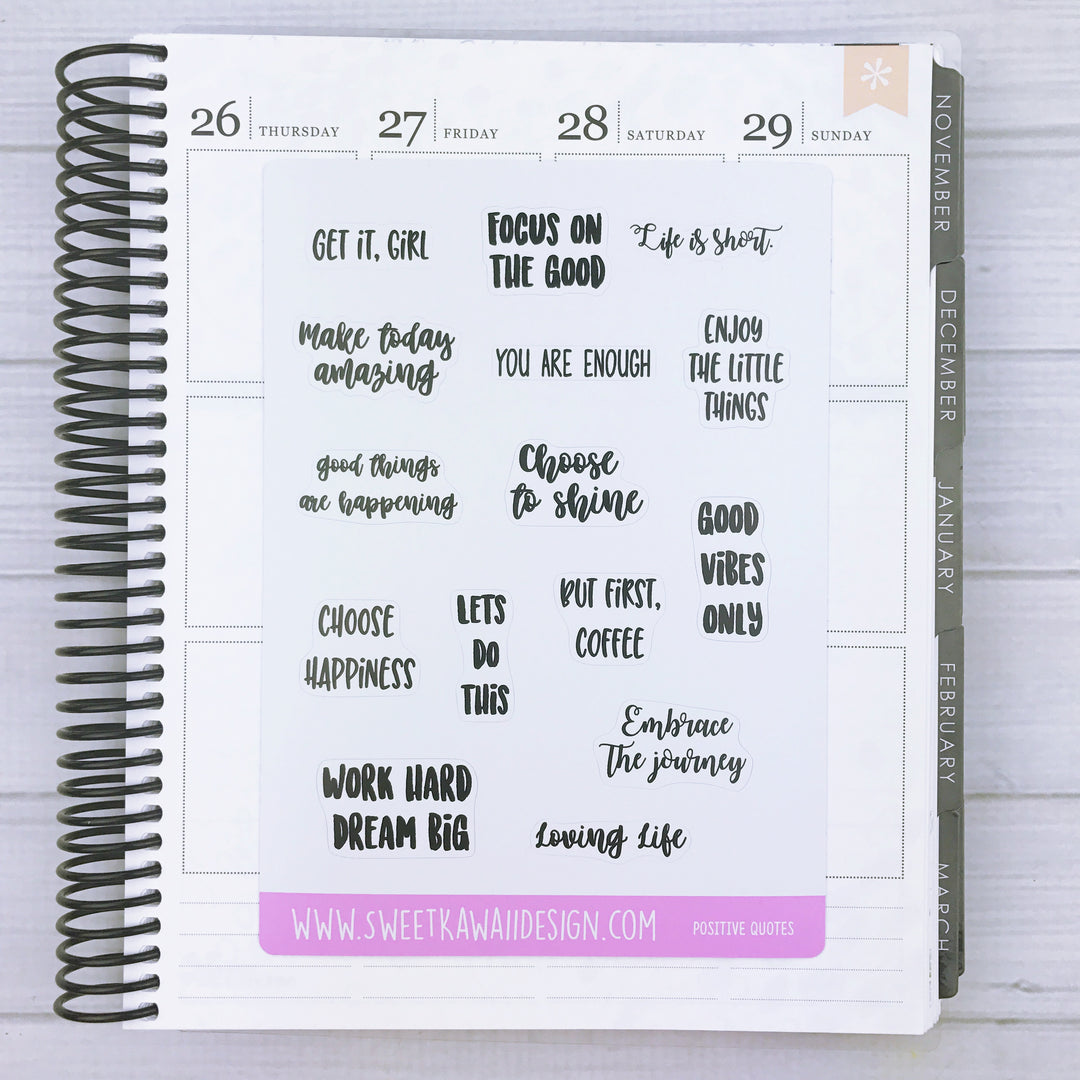 26 THURSDAY 27 FRIDAY 28 SATURDAY 29 SUNDAY
GET iT, GiRL
FOCUS ON
THE GOOD
Life is short.
Make today
amazing
YOU ARE ENOUGH
ENJOY
THE LiTTLE
THiNGS
good things
are happening
Choose
to shine
GOOD
ViBES
ONLY
CHOOSE
HAPPiNESS
LETS
DO
THiS
BUT FiRST,
COFFEE
Embrace
The journey
WORK HARD
DREAM BiG
Loving Life
WWW.SWEETKAWAIIDESIGN.COM
POSITIVE QUOTES
NOVEMBER
DECEMBER
JANUARY
FEBRUARY
MARCH